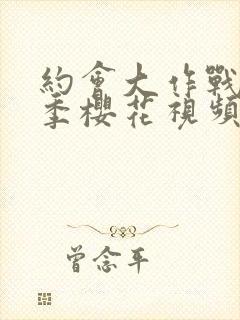 約會大作戰
季櫻花視頻
曾念平